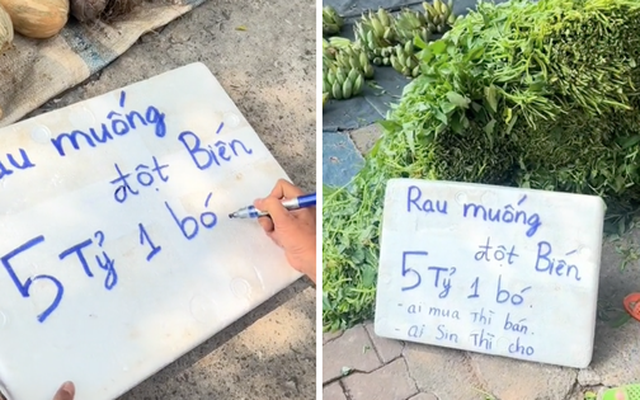 au muống
đột Biến
5 Tỷ 1 bó
Rau muống
đột Biến
5 Tỷ 1 bó.
- ai mua Thì bán.
- ai Sin Thì cho